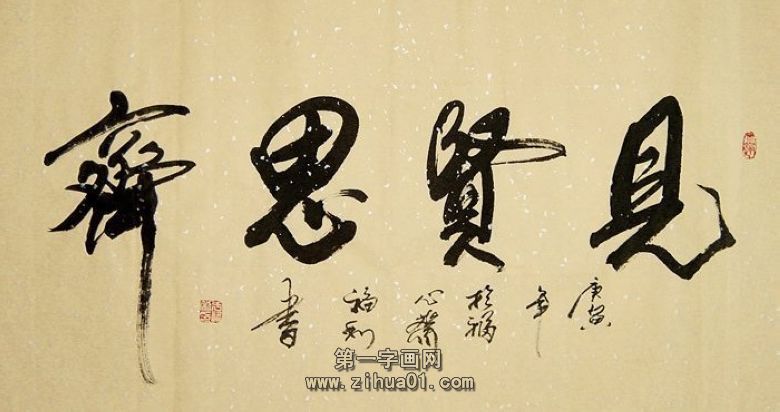 見賢思齊
庚寅
年
心齋
福利
書
第一字画网
www.zihua01.com